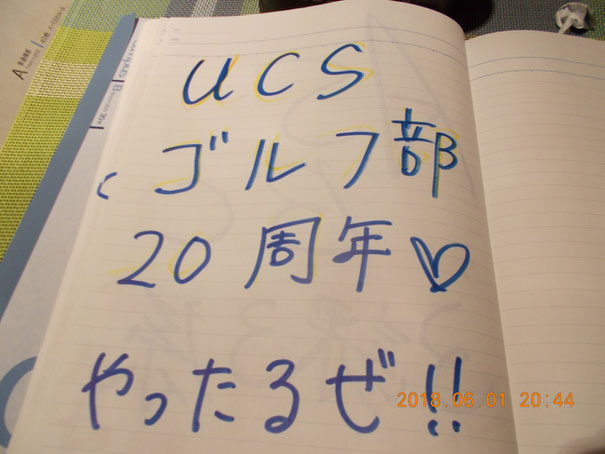 UCS
ゴルフ部
20周年♡
やったるぜ!!
2018.06.01 20:44